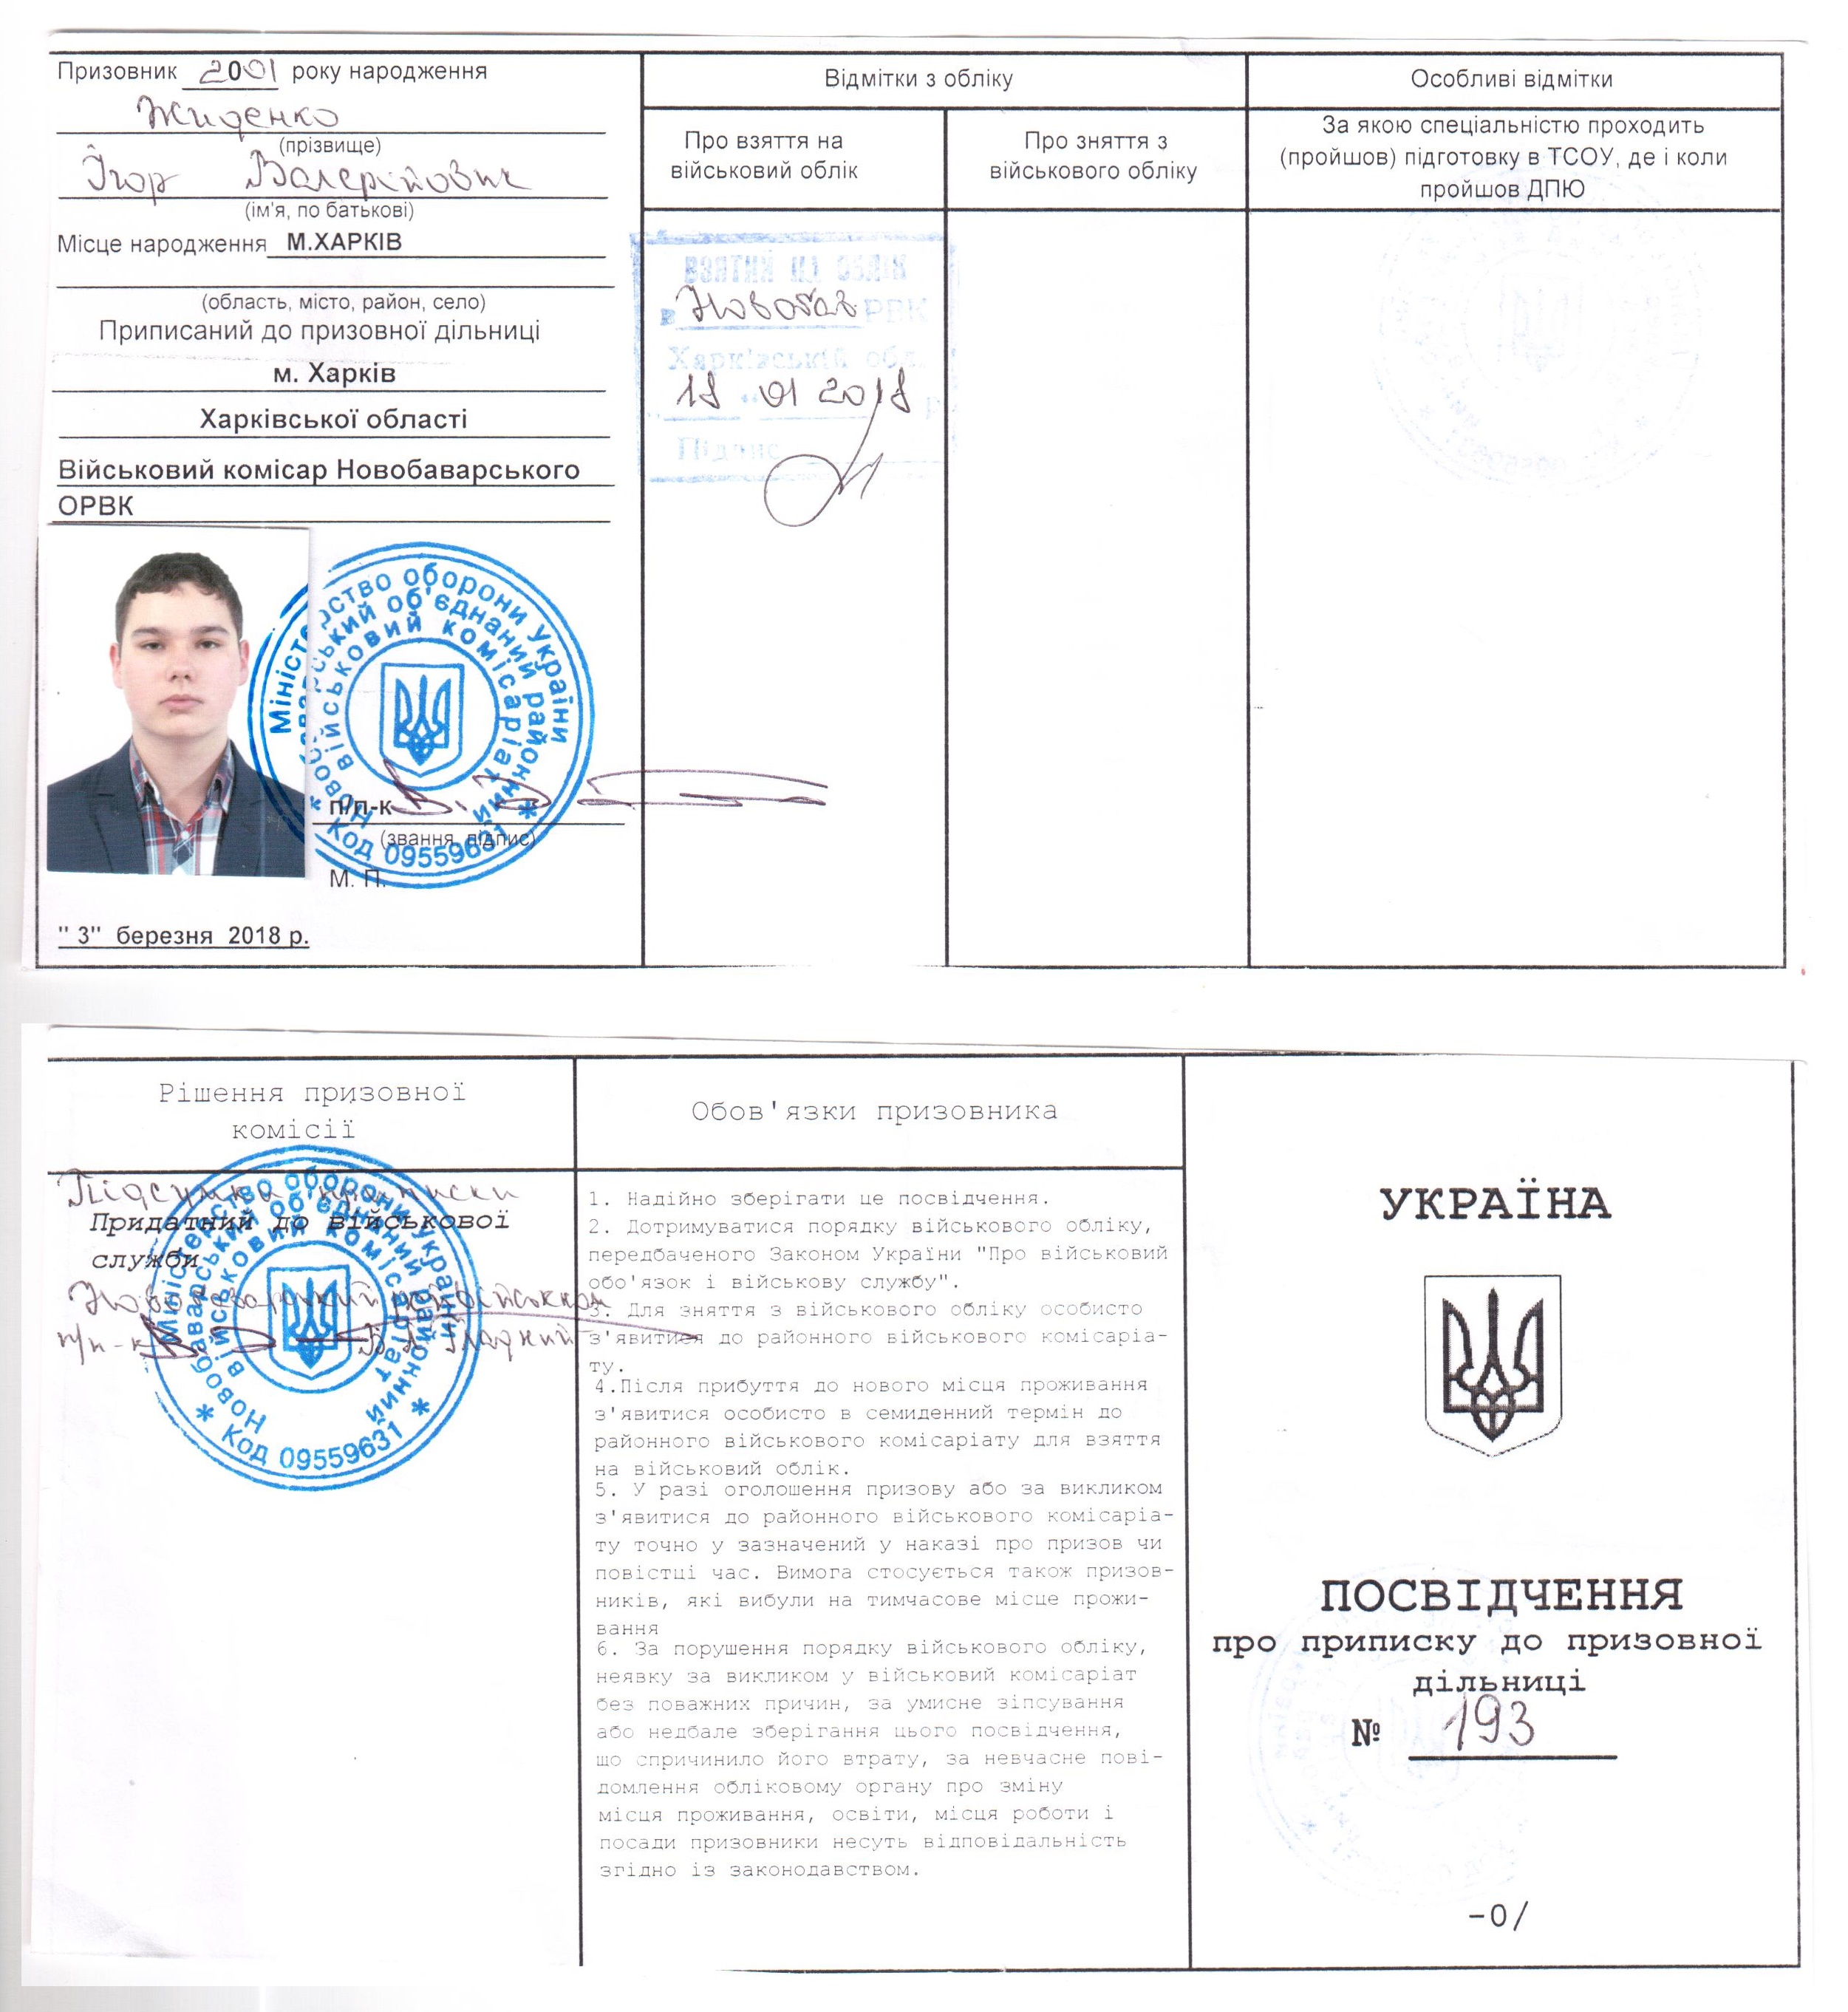 Призовник 2001 року народження
Жиденко
(прізвище)
Ігор Валерійович
(ім'я, по батькові)
Місце народження М.ХАРКІВ
(область, місто, район, село)
Приписаний до призовної дільниці
м. Харків
Харківської області
Військовий комісар Новобаварського
ОРВК
Міністерство оборони України
Новобаварський об'єднаний районний
військовий комісаріат
* Код 09559631 *
п/п-к
(звання, підпис)
М. П.
" 3" березня 2018 р.
Відмітки з обліку
Про взяття на
військовий облік
Про зняття з
військового обліку
ВЗЯТИЙ НА ОБЛІК
в Новобав РВК
Харківській обл.
18 01 2018 р
Підпис
Особливі відмітки
За якою спеціальністю проходить
(пройшов) підготовку в ТСОУ, де і коли
пройшов ДПЮ
Рішення призовної
комісії
Підсумки приписки
Придатний до військової
служби
п/п-к
Міністерство оборони України
Новобаварський об'єднаний районний
військовий комісаріат
* Код 09559631 *
Обов'язки призовника
1. Надійно зберігати це посвідчення.
2. Дотримуватися порядку військового обліку,
передбаченого Законом України "Про військовий
обо'язок і військову службу".
3. Для зняття з військового обліку особисто
з'явитися до районного військового комісаріа-
ту.
4.Після прибуття до нового місця проживання
з'явитися особисто в семиденний термін до
районного військового комісаріату для взяття
на військовий облік.
5. У разі оголошення призову або за викликом
з'явитися до районного військового комісаріа-
ту точно у зазначений у наказі про призов чи
повістці час. Вимога стосується також призов-
ників, які вибули на тимчасове місце прожи-
вання
6. За порушення порядку військового обліку,
неявку за викликом у військовий комісаріат
без поважних причин, за умисне зіпсування
або недбале зберігання цього посвідчення,
що спричинило його втрату, за невчасне пові-
домлення обліковому органу про зміну
місця проживання, освіти, місця роботи і
посади призовники несуть відповідальність
згідно із законодавством.
УКРАЇНА
ПОСВІДЧЕННЯ
про приписку до призовної
дільниці
№ 193
-0/